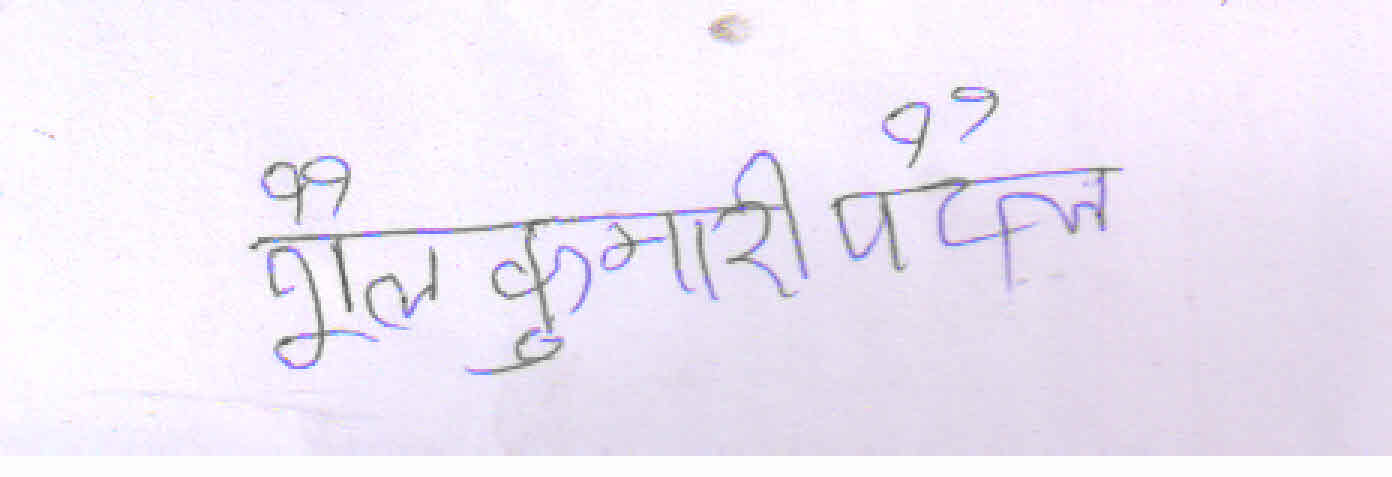 शैल कुमारी पटेल